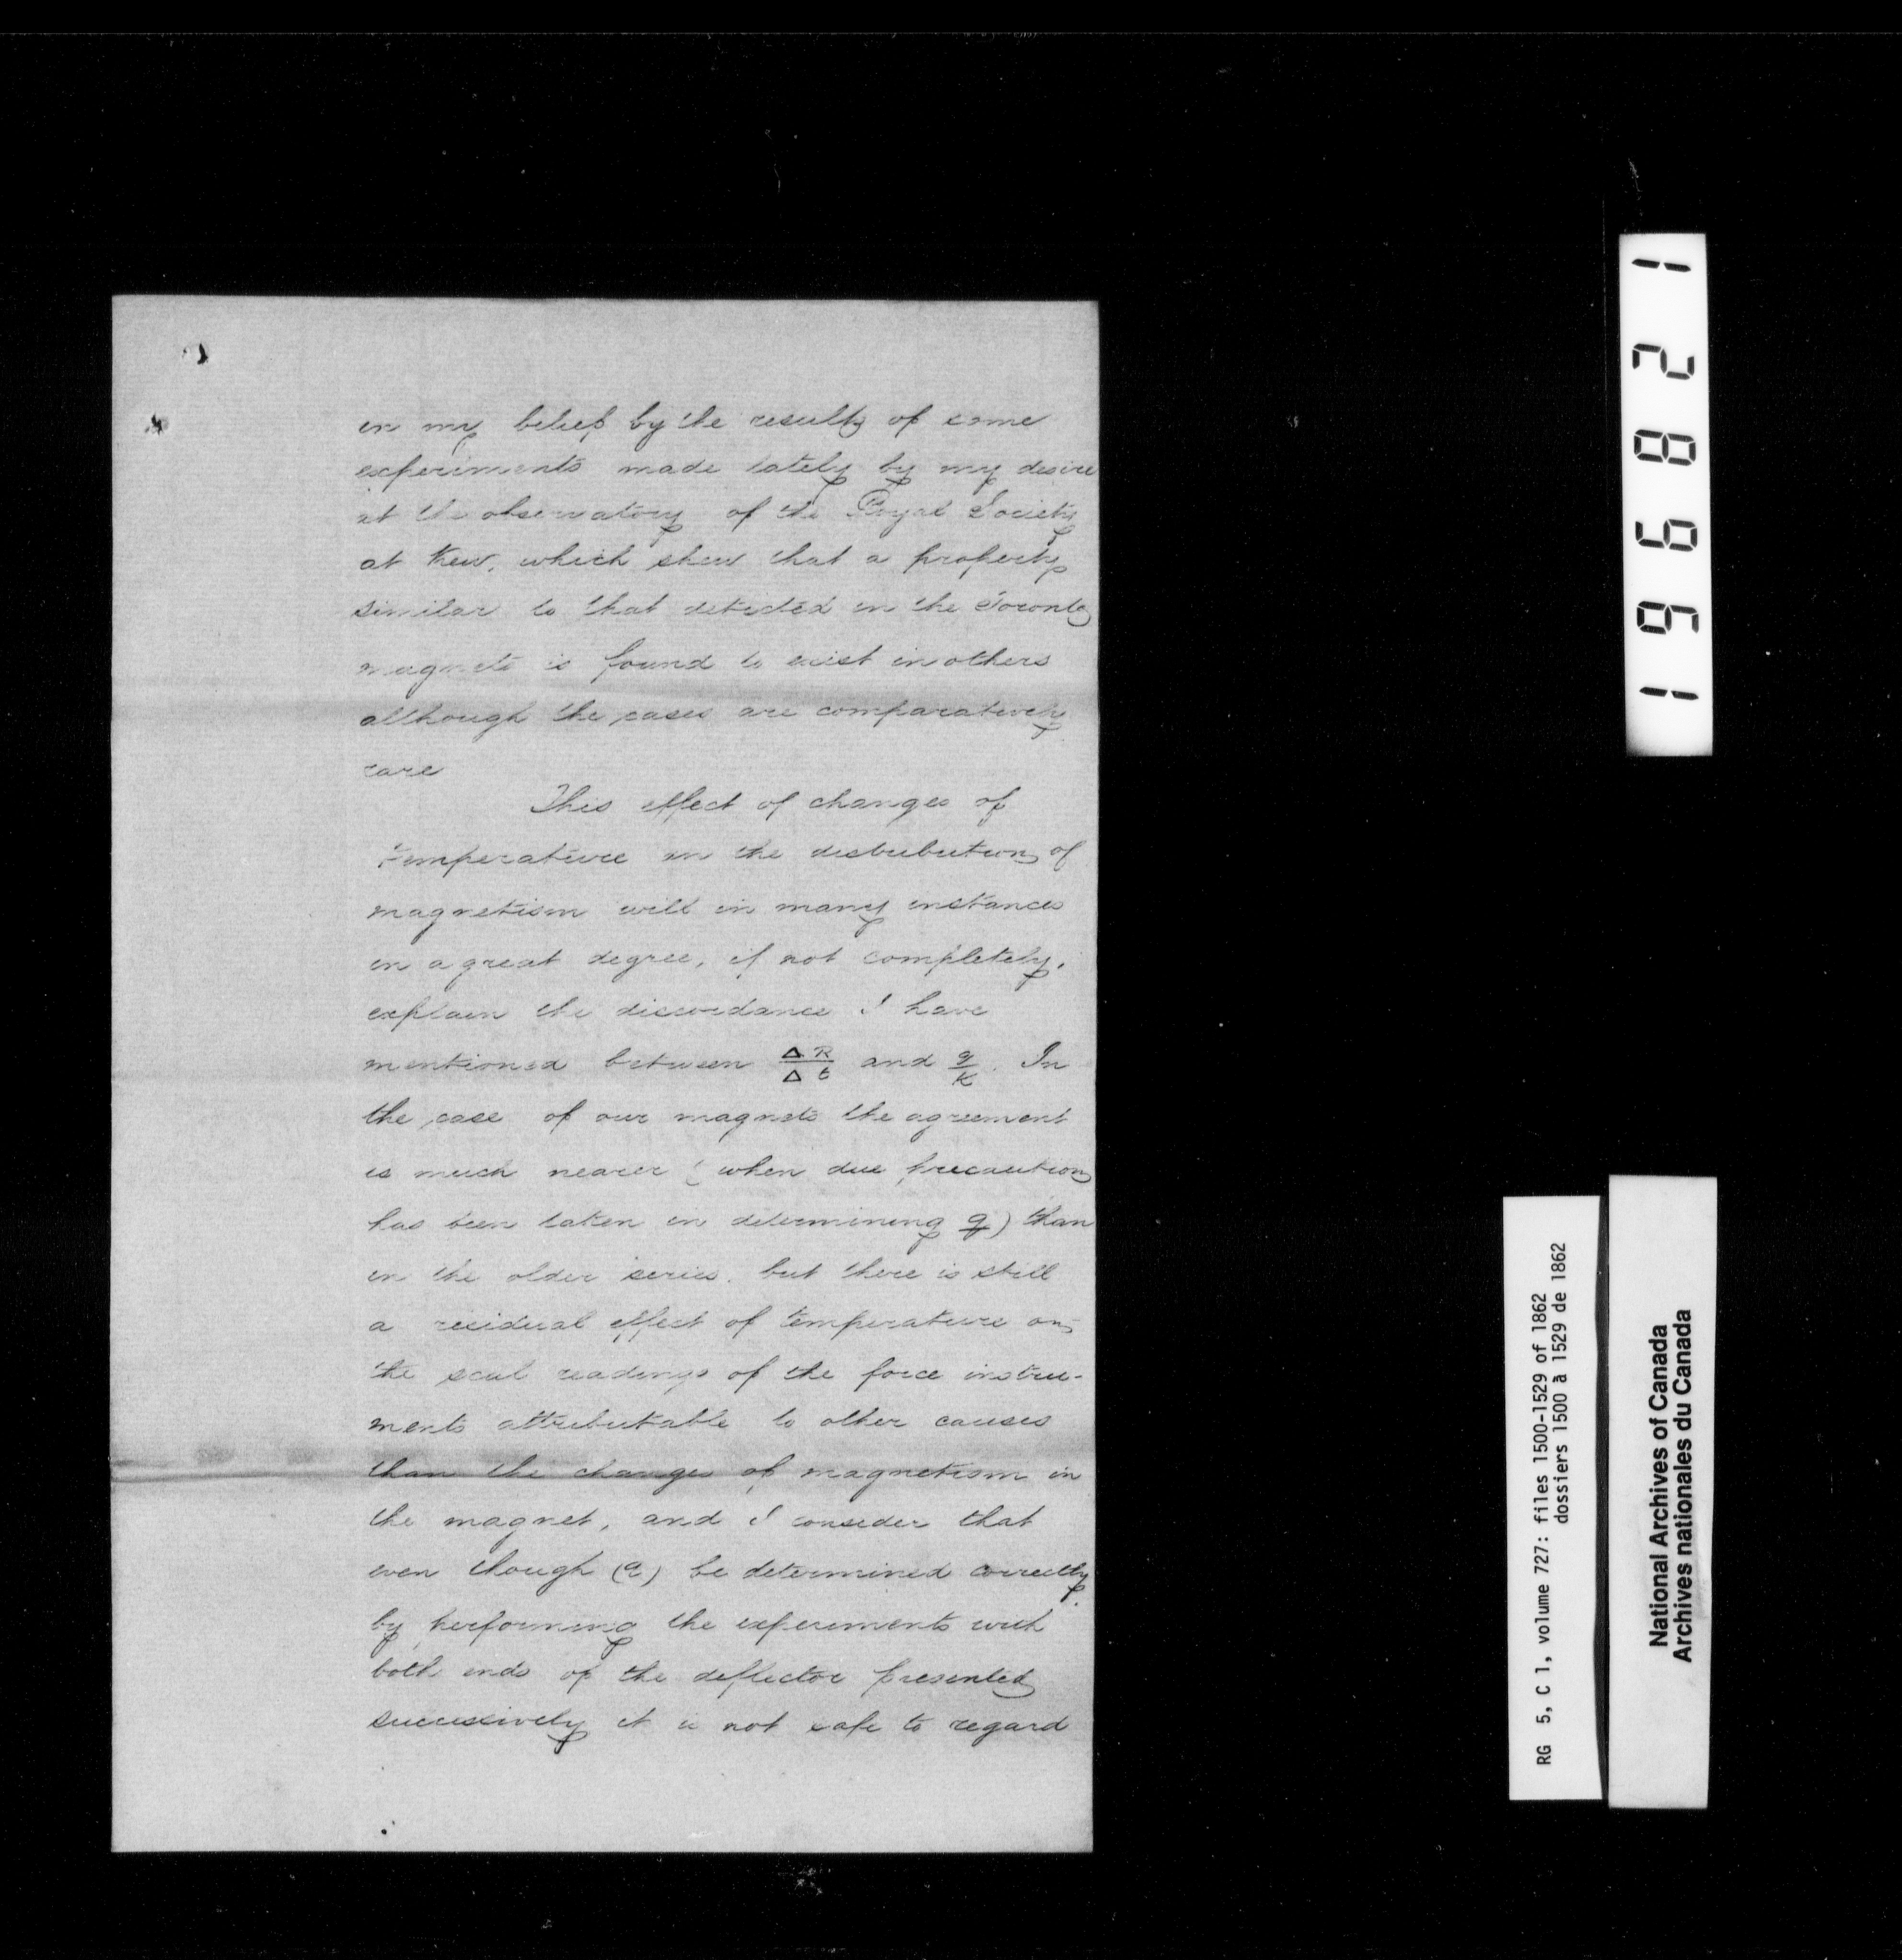 in my belief by the results of some
experiments made lately by my desire
at the observatory of the Royal Society
at Kew, which shew that a property
similar to that detected in the Toronto
magnets is found to exist in others
although the cases are comparatively
rare
This effect of changes of
temperature in the distribution of
magnetism will in many instances
in a great degree, if not completely,
explain the discordance I have
mentioned between ΔR/Δt and q/K. In
the case of our magnets the agreement
is much nearer (when due precaution
has been taken in determining q) than
in the older series. but there is still
a residual effect of temperature on
the scale readings of the force instru-
ments attributable to other causes
than the changes of magnetism in
the magnet, and I consider that
even though (q) be determined correctly
by performing the experiments with
both ends of the deflector presented
successively it is not safe to regard
196821
RG 5, C 1, volume 727: files 1500-1529 of 1862
dossiers 1500 à 1529 de 1862
National Archives of Canada
Archives nationales du Canada